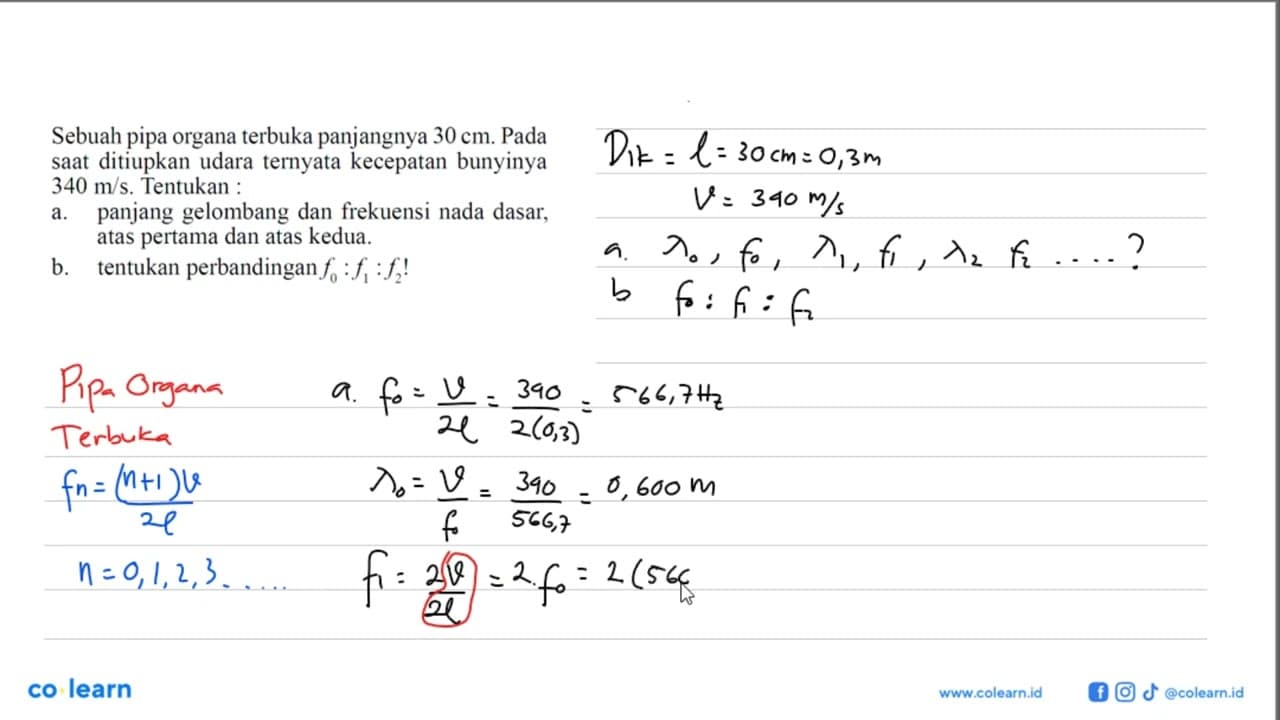 Sebuah pipa organa terbuka panjangnya 30 cm. Pada
saat ditiupkan udara ternyata kecepatan bunyinya
340 m/s. Tentukan :
a. panjang gelombang dan frekuensi nada dasar,
atas pertama dan atas kedua.
b. tentukan perbandingan f₀ : f₁ : f₂!
Dik = l = 30 cm = 0,3 m
V = 340 m/s
a. λ₀, f₀, λ₁, f₁, λ₂ f₂ ....?
b f₀ : f₁ : f₂
Pipa Organa
Terbuka
fn = (n+1)V / 2l
n = 0, 1, 2, 3.....
a. f₀ = V / 2l = 340 / 2(0,3) = 566,7 Hz
λ₀ = V / f₀ = 340 / 566,7 = 0,600 m
f₁ = 2V / 2l = 2. f₀ = 2 (566
co learn
www.colearn.id
@colearn.id